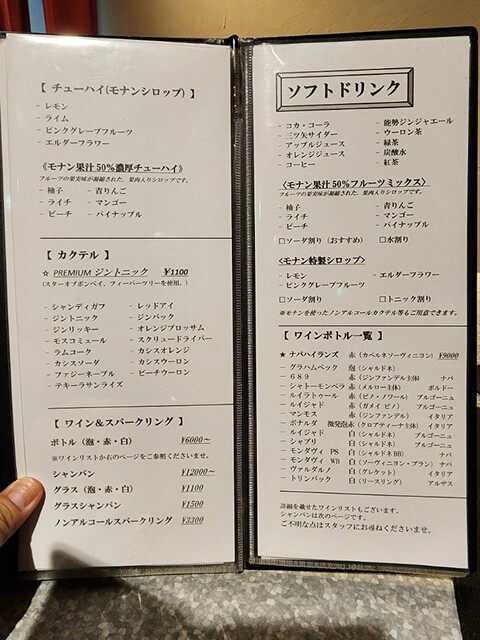 【 チューハイ(モナンシロップ) 】
- レモン
- ライム
- ピンクグレープフルーツ
- エルダーフラワー
《モナン果汁50%濃厚チューハイ》
フルーツの果実味が凝縮された、果肉入りシロップです。
- 柚子 - 青りんご
- ライチ - マンゴー
- ピーチ - パイナップル
【 カクテル 】
☆ PREMIUM ジントニック ¥1100
(スターオブボンベイ、フィーバーツリーを使用。)
- シャンディガフ - レッドアイ
- ジントニック - ジンバック
- ジンリッキー - オレンジブロッサム
- モスコミュール - スクリュードライバー
- ラムコーク - カシスオレンジ
- カシスソーダ - カシスウーロン
- ファジーネーブル - ピーチウーロン
- テキーラサンライズ
【 ワイン&スパークリング 】
ボトル(泡・赤・白) ¥6000～
※ワインリストか右のページをご参照くださいませ。
シャンパン ¥12000～
グラス(泡・赤・白) ¥1100
グラスシャンパン ¥1500
ノンアルコールスパークリング ¥3300
ソフトドリンク
- コカ・コーラ - 能勢ジンジャエール
- 三ツ矢サイダー - ウーロン茶
- アップルジュース - 緑茶
- オレンジジュース - 炭酸水
- コーヒー - 紅茶
〈モナン果汁50%フルーツミックス〉
フルーツの果実味が凝縮された、果肉入りシロップです。
- 柚子 - 青りんご
- ライチ - マンゴー
- ピーチ - パイナップル
□ソーダ割り(おすすめ) □水割り
〈モナン特製シロップ〉
- レモン - エルダーフラワー
- ピンクグレープフルーツ
□ソーダ割り □トニック割り
※モナンを使ったノンアルコールカクテル等もご用意できます。
【 ワインボトル一覧 】
★ ナパハイランズ 赤(カベルネソーヴィニヨン) ¥9000
- グラハムベック 泡(シャルドネ)
- 689 赤(ジンファンデル主体) ナパ
- シャトーモンペラ 赤(メルロー主体) ボルドー
- ルイラトゥール 赤(ピノ・ノワール) ブルゴーニュ
- ルイジャド 赤(ガメイ ピノ) ブルゴーニュ
- マンモス 赤(ジンファンデル) イタリア
- ボナルダ 微発泡赤(クロアティーナ主体) イタリア
- ルイジャド 白(シャルドネ) ブルゴーニュ
- シャブリ 白(シャルドネ) ブルゴーニュ
- モンダヴィ PS 白(シャルドネBB) ナパ
- モンダヴィ WB 白(ソーヴィニヨン・ブラン) ナパ
- ヴァルダルノ 白(グレケット) イタリア
- トリンバック 白(リースリング) アルザス
詳細を載せたワインリストもございます。
シャンパンは次のページです。
ご不明な点はスタッフにお尋ねくださいませ。